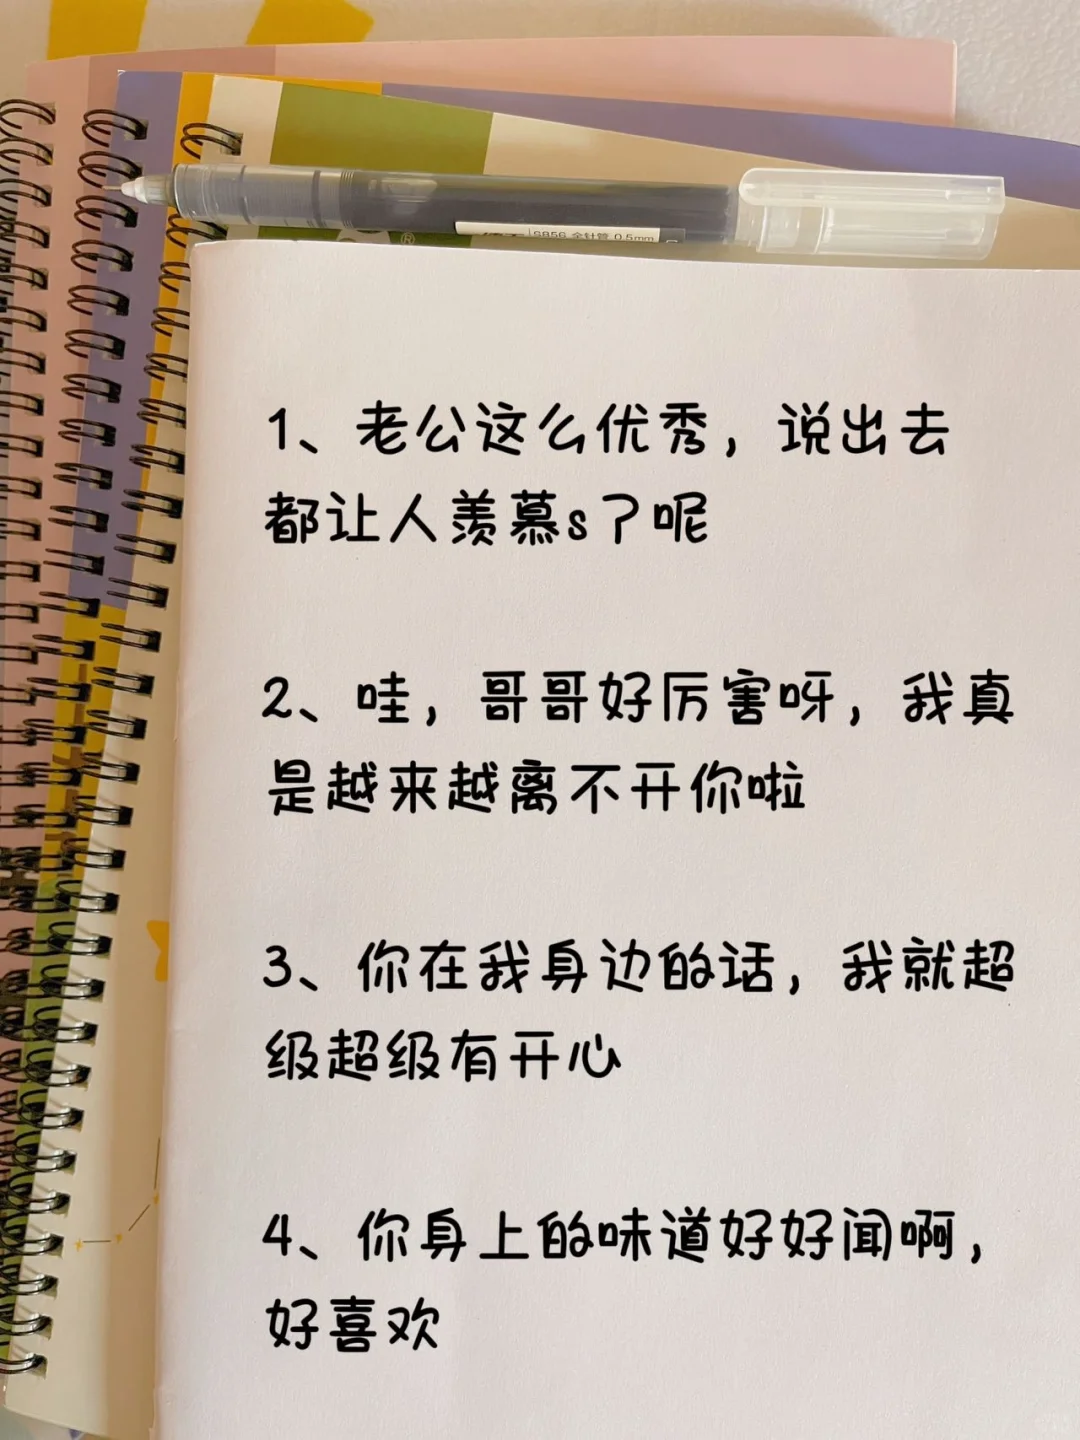 S856 全针管 0.5mm
1、老公这么优秀，说出去
都让人羡慕s了呢
2、哇，哥哥好厉害呀，我真
是越来越离不开你啦
3、你在我身边的话，我就超
级超级有开心
4、你身上的味道好好闻啊，
好喜欢